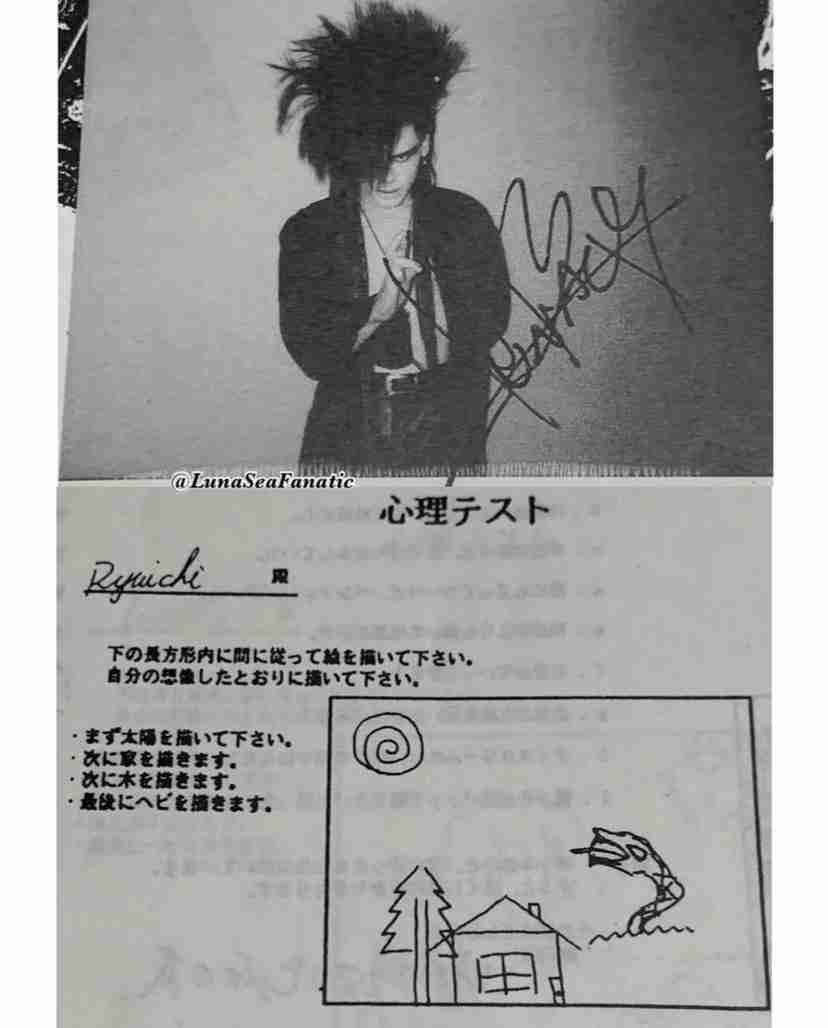 @LunaSeaFanatic
心理テスト
Ryuichi 殿
下の長方形内に問に従って絵を描いて下さい。
自分の想像したとおりに描いて下さい。
・まず太陽を描いて下さい。
・次に家を描きます。
・次に木を描きます。
・最後にヘビを描きます。